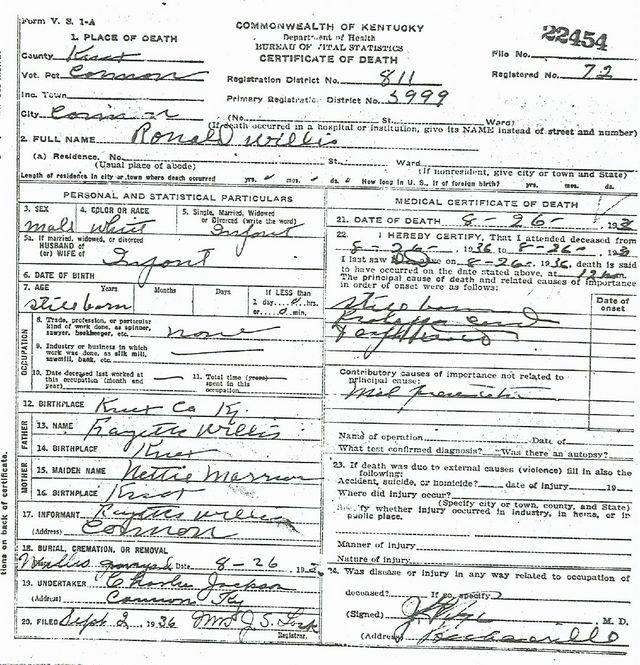 Form V. S. 1-A
COMMONWEALTH OF KENTUCKY
Department of Health
BUREAU OF VITAL STATISTICS
CERTIFICATE OF DEATH
22454
File No.
Registered No. 72
1. PLACE OF DEATH
County Knox
Vot. Pct Cannon
Inc. Town
City
Registration District No. 811
Primary Registration District No. 5999
(No. St. Ward)
(If death occurred in a hospital or institution, give its NAME instead of street and number)
2. FULL NAME Ronald Willis
(a) Residence. No. St. Ward
(Usual place of abode) (If nonresident, give city or town and State)
Length of residence in city or town where death occurred yrs. mos. ds. How long in U. S., if of foreign birth? yrs. mos. ds.
PERSONAL AND STATISTICAL PARTICULARS
3. SEX 4. COLOR OR RACE 5. Single, Married, Widowed
or Divorced (write the word)
Male White Infant
5a. If married, widowed, or divorced
HUSBAND of
(or) WIFE of Infant
6. DATE OF BIRTH
7. AGE Years Months Days If LESS than
1 day 0 hrs.
Stillborn or 0 min.
OCCUPATION
8. Trade, profession, or particular
kind of work done, as spinner,
sawyer, bookkeeper, etc. none
9. Industry or business in which
work was done, as silk mill,
sawmill, bank, etc.
10. Date deceased last worked at
this occupation (month and
year)
11. Total time (years)
spent in this
occupation
12. BIRTHPLACE Knox Co Ky.
FATHER
13. NAME Willis
14. BIRTHPLACE Knox
MOTHER
15. MAIDEN NAME Nettie
16. BIRTHPLACE Knox
17. INFORMANT Willis
(Address) Cannon
18. BURIAL, CREMATION, OR REMOVAL
Willis graveyard Date 8-26 193
19. UNDERTAKER Charlie Jackson
(Address) Cannon Ky
20. FILED Sept 2, 1936 Mrs J. S.
Registrar.
MEDICAL CERTIFICATE OF DEATH
21. DATE OF DEATH 8-26- 193
22. I HEREBY CERTIFY, That I attended deceased from
8-26- 1936 to 8-26- 193
I last saw on 8-26-, 1936, death is said
to have occurred on the date stated above, at 12 m.
The principal cause of death and related causes of importance
in order of onset were as follows:
Date of
onset
Stillborn
Contributory causes of importance not related to
principal cause:
Mal presentation
Name of operation Date of
What test confirmed diagnosis? Was there an autopsy?
23. If death was due to external causes (violence) fill in also the
following:
Accident, suicide, or homicide? date of injury 19
Where did injury occur?
(Specify city or town, county, and State)
Specify whether injury occurred in industry, in home, or in
public place.
Manner of injury
Nature of injury
24. Was disease or injury in any way related to occupation of
deceased? If so, specify
(Signed) M. D.
(Address) Barbourville
tions on back of certificate.